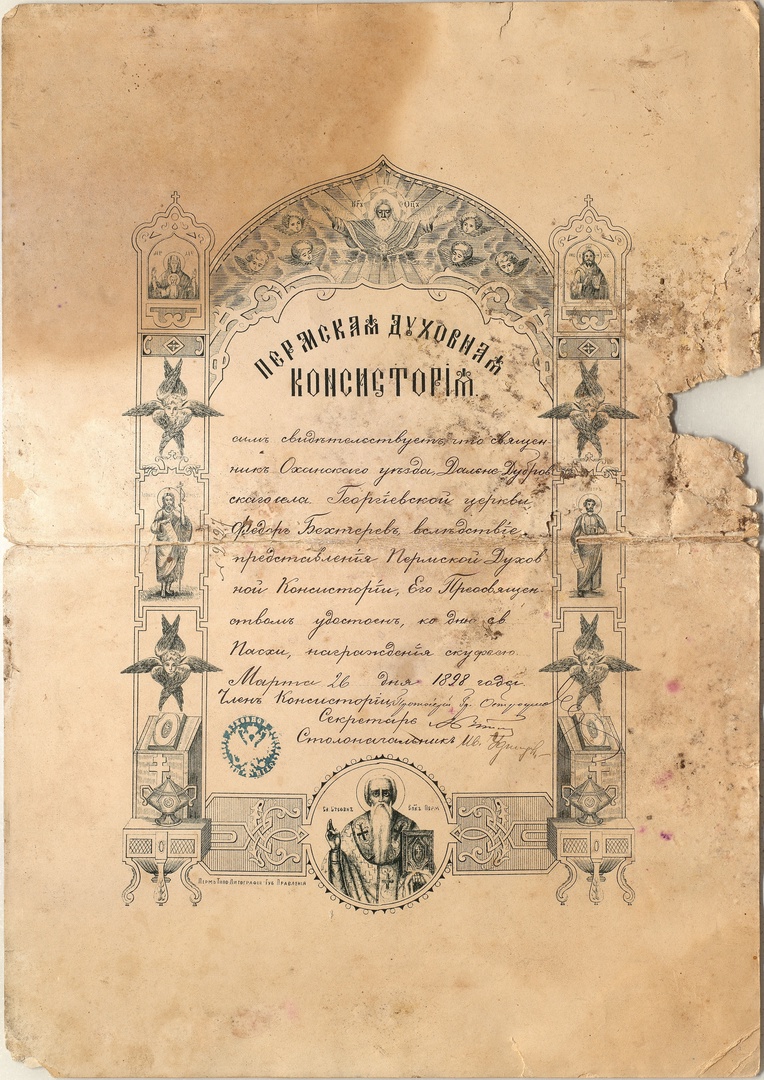 Бгъ Оцъ
ПЕРМСКАѦ ДУХОВНАѦ
КОНСИСТОРІѦ
симъ свидѣтельствуетъ, что священ-
никъ Оханскаго уѣзда, Далене-Дубров
скаго села Георгіевской церкви,
Федоръ Бехтеревъ, вслѣдствіе
представленія Пермской Духов
ной Консисторіи, Его Преосвящен-
ствомъ удостоенъ, ко дню св.
Пасхи, награжденія скуфьею.
Марта 26 дня 1898 года.
Членъ Консисторіи, Протоіерей Гр. Остроумовъ
Секретарь
Столоначальникъ Ив.
Св. Стефанъ Епкъ Перм
Пермь Типо Литографія Губ. Правленія